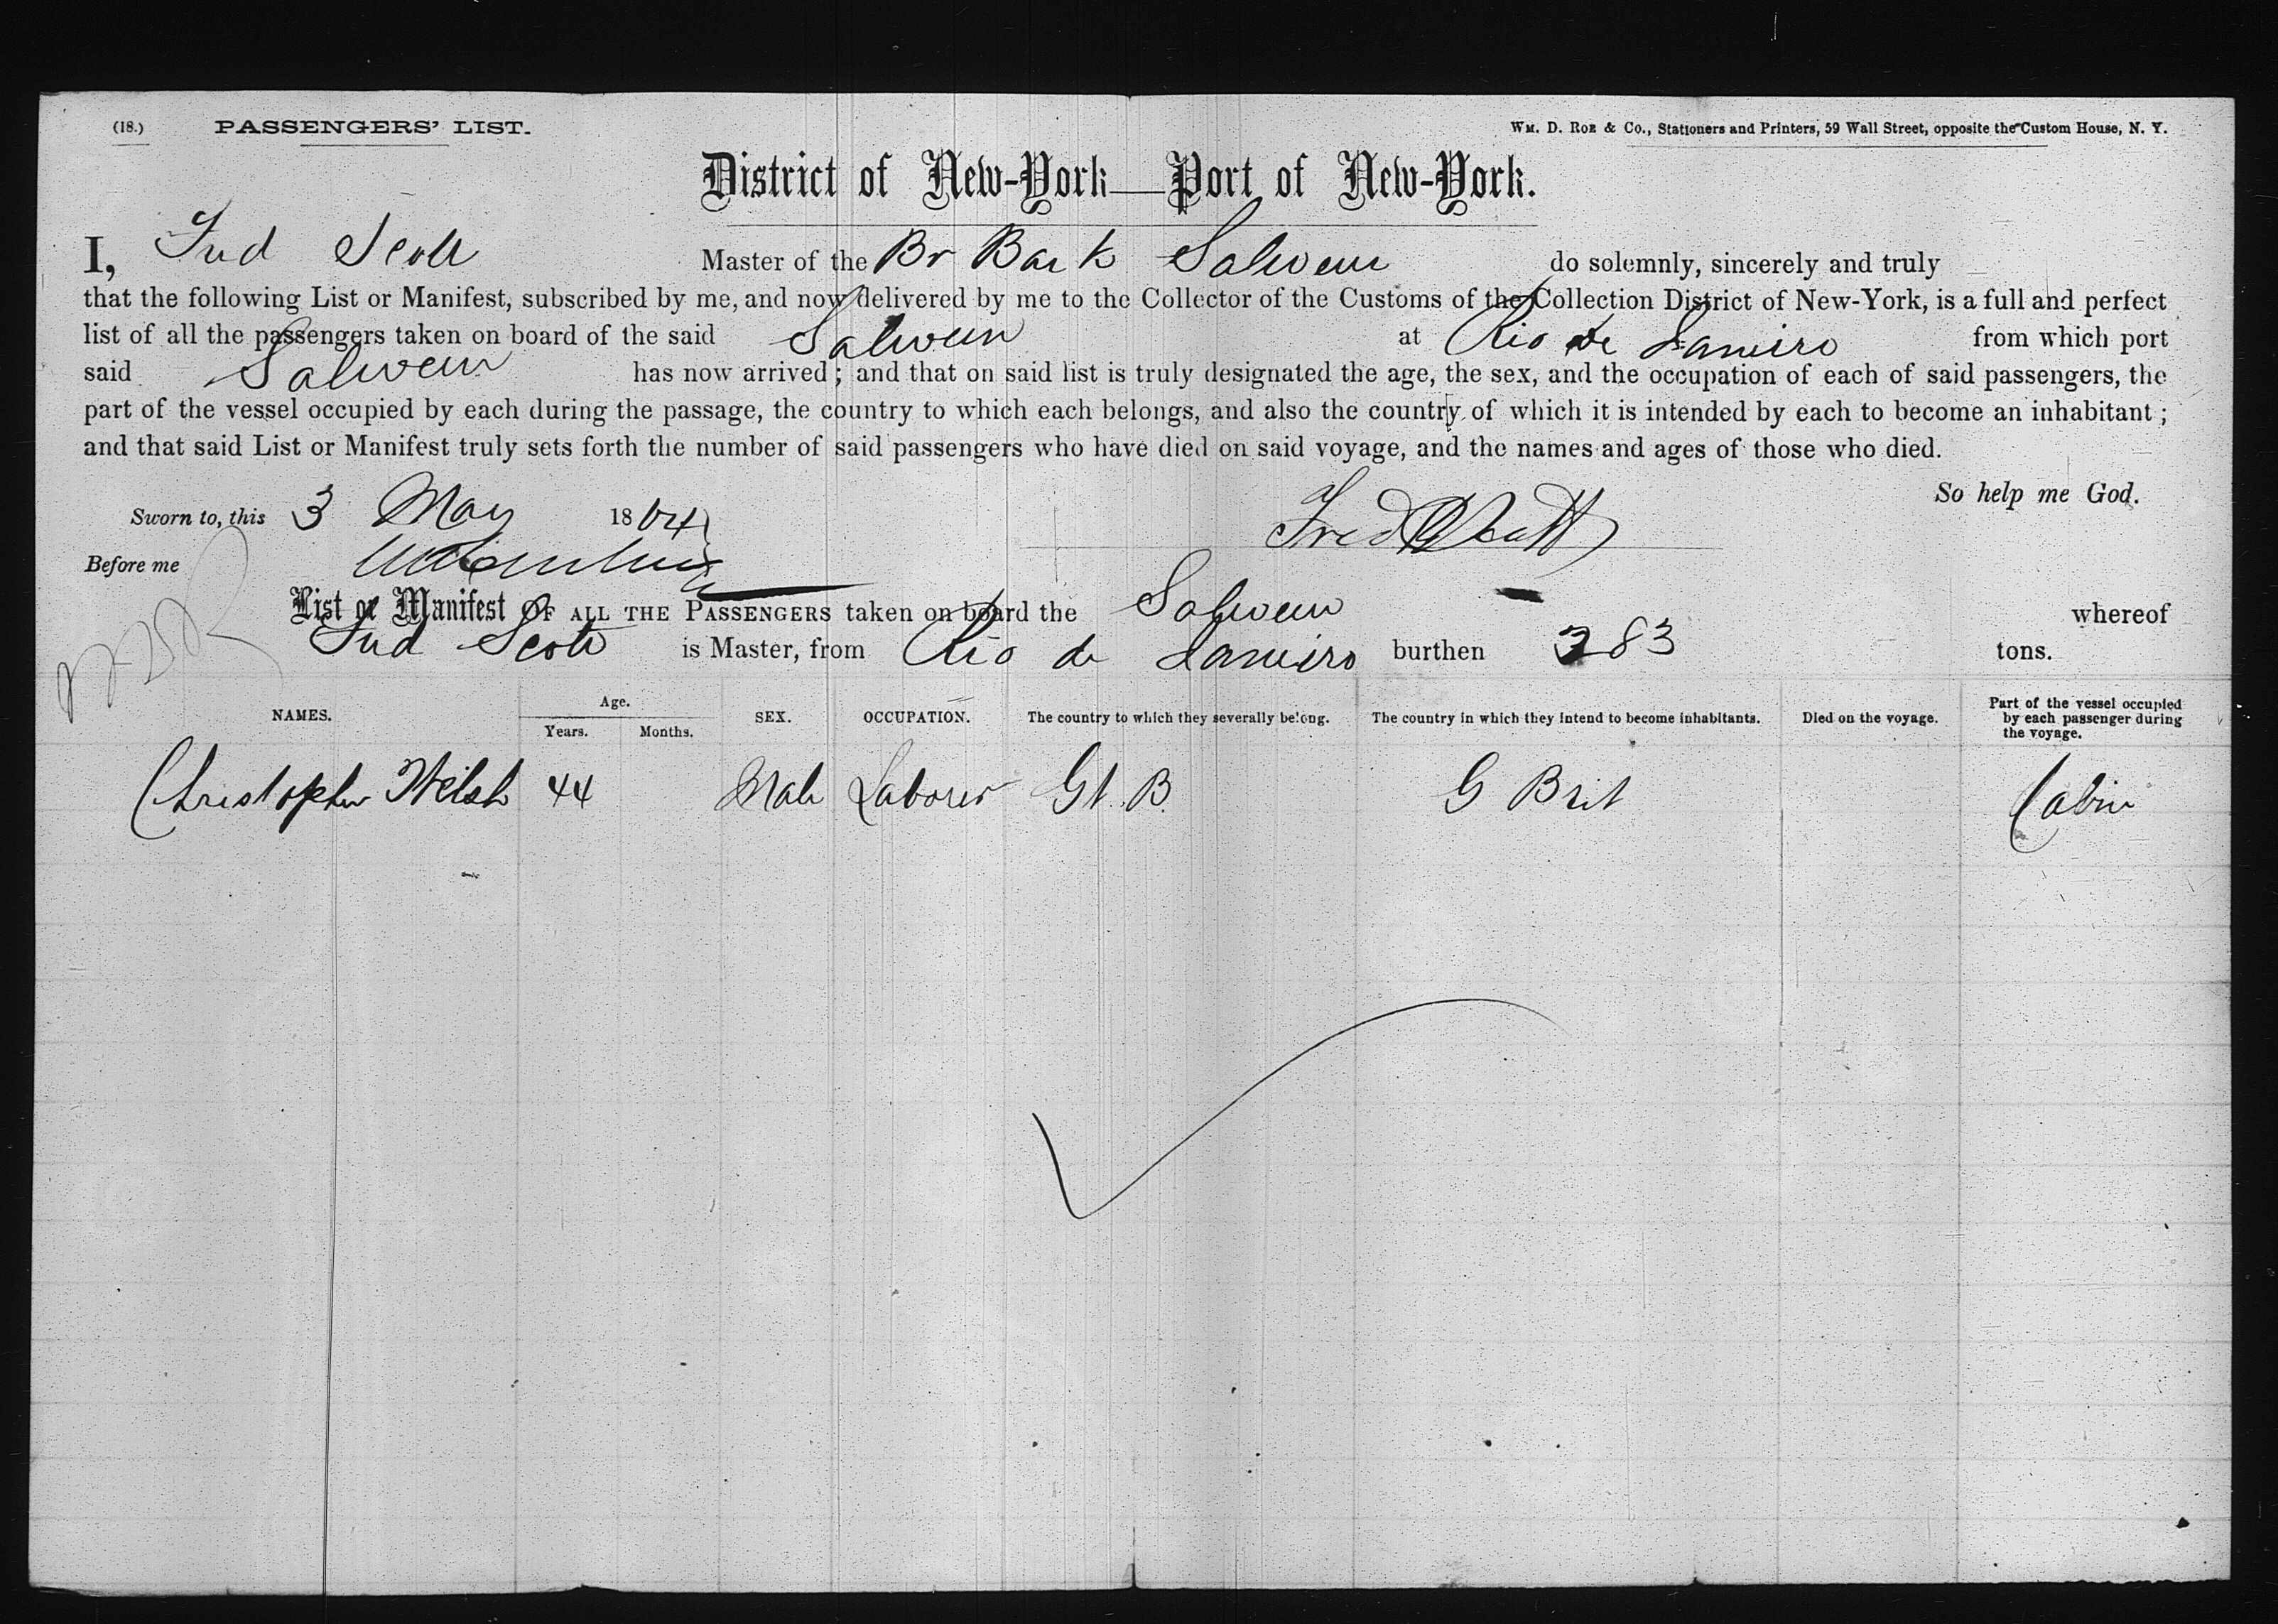 (18.) PASSENGERS' LIST. WM. D. ROE & CO., Stationers and Printers, 59 Wall Street, opposite the Custom House, N. Y.
District of New-York—Port of New-York.
I, Fred Scott Master of the Br Bark Salween do solemnly, sincerely and truly
that the following List or Manifest, subscribed by me, and now delivered by me to the Collector of the Customs of the Collection District of New-York, is a full and perfect
list of all the passengers taken on board of the said Salween at Rio de Janeiro from which port
said Salween has now arrived; and that on said list is truly designated the age, the sex, and the occupation of each of said passengers, the
part of the vessel occupied by each during the passage, the country to which each belongs, and also the country of which it is intended by each to become an inhabitant;
and that said List or Manifest truly sets forth the number of said passengers who have died on said voyage, and the names and ages of those who died.
So help me God.
Sworn to, this 3 May 1864 Fred Scott
Before me
List or Manifest OF ALL THE PASSENGERS taken on board the Salween whereof
Fred Scott is Master, from Rio de Janeiro burthen 383 tons.
NAMES. Age. Years. Months. SEX. OCCUPATION. The country to which they severally belong. The country in which they intend to become inhabitants. Died on the voyage. Part of the vessel occupied by each passenger during the voyage.
Christopher Welsh 44 Male Laborer Gt. B. G Brit Cabin